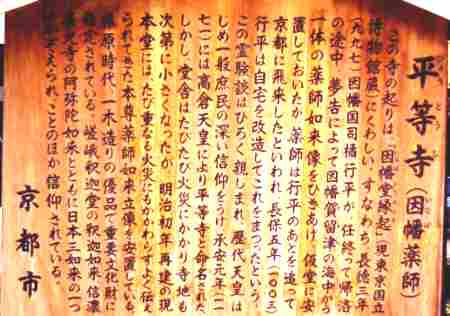 平等寺（因幡薬師）
びょうどうじ
いなば
この寺の起りは、「因幡堂縁起」（現東京国立
博物館蔵）にくわしい。すなわち、長徳三年
（九九七）因幡国司橘行平が、任終って帰洛
の途中、夢告によって因幡賀留津の海中から
一体の薬師如来像をひきあげ、仮堂に安
置しておいたが、薬師は行平のあとを追って
京都に飛来したといわれ、長保五年（一〇〇三）
行平は自宅を改造してこれをまつったという。
この霊験談はひろく親しまれ、歴代天皇は
じめ一般庶民の深い信仰をうけ、承安元年（一一
七一）には高倉天皇により平等寺と命名された。
しかし、堂舎はたびたび火災にかかり寺地も
次第に小さくなったが、明治初年再建の現
本堂には、たび重なる火災にもかかわらずよく伝え
られてきた本尊薬師如来立像を安置している。
藤原時代、一木造りの優品で重要文化財に
指定されている。嵯峨釈迦堂の釈迦如来、信濃
善光寺の阿弥陀如来とともに日本三如来の一つ
に数えられ、ことのほか信仰されている。
京都市